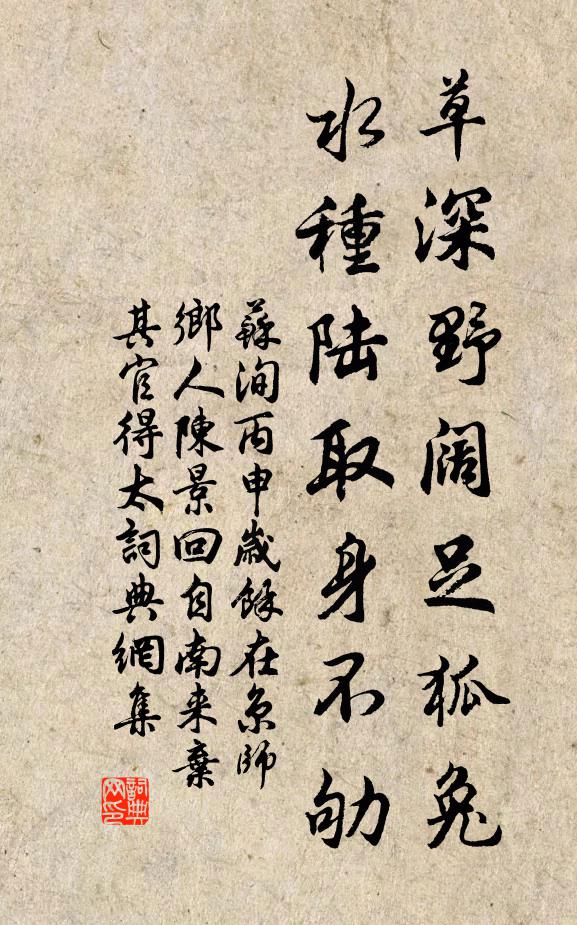 草深野阔足狐兔
水種陆取身不劬
蘇洵丙申歲餘在京師
鄉人陳景回自南来棄
其官得太詞典網集
詞典网印